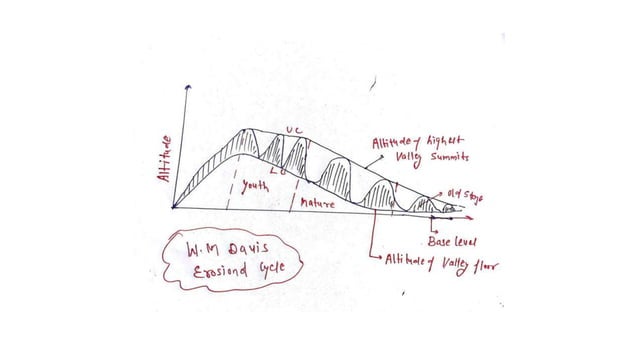 UC
Altitude of highest
Valley summits
Altitude
LC
youth
mature
old stage
Base level
Altitude of Valley floor
W.M Davis
Erosiond Cycle